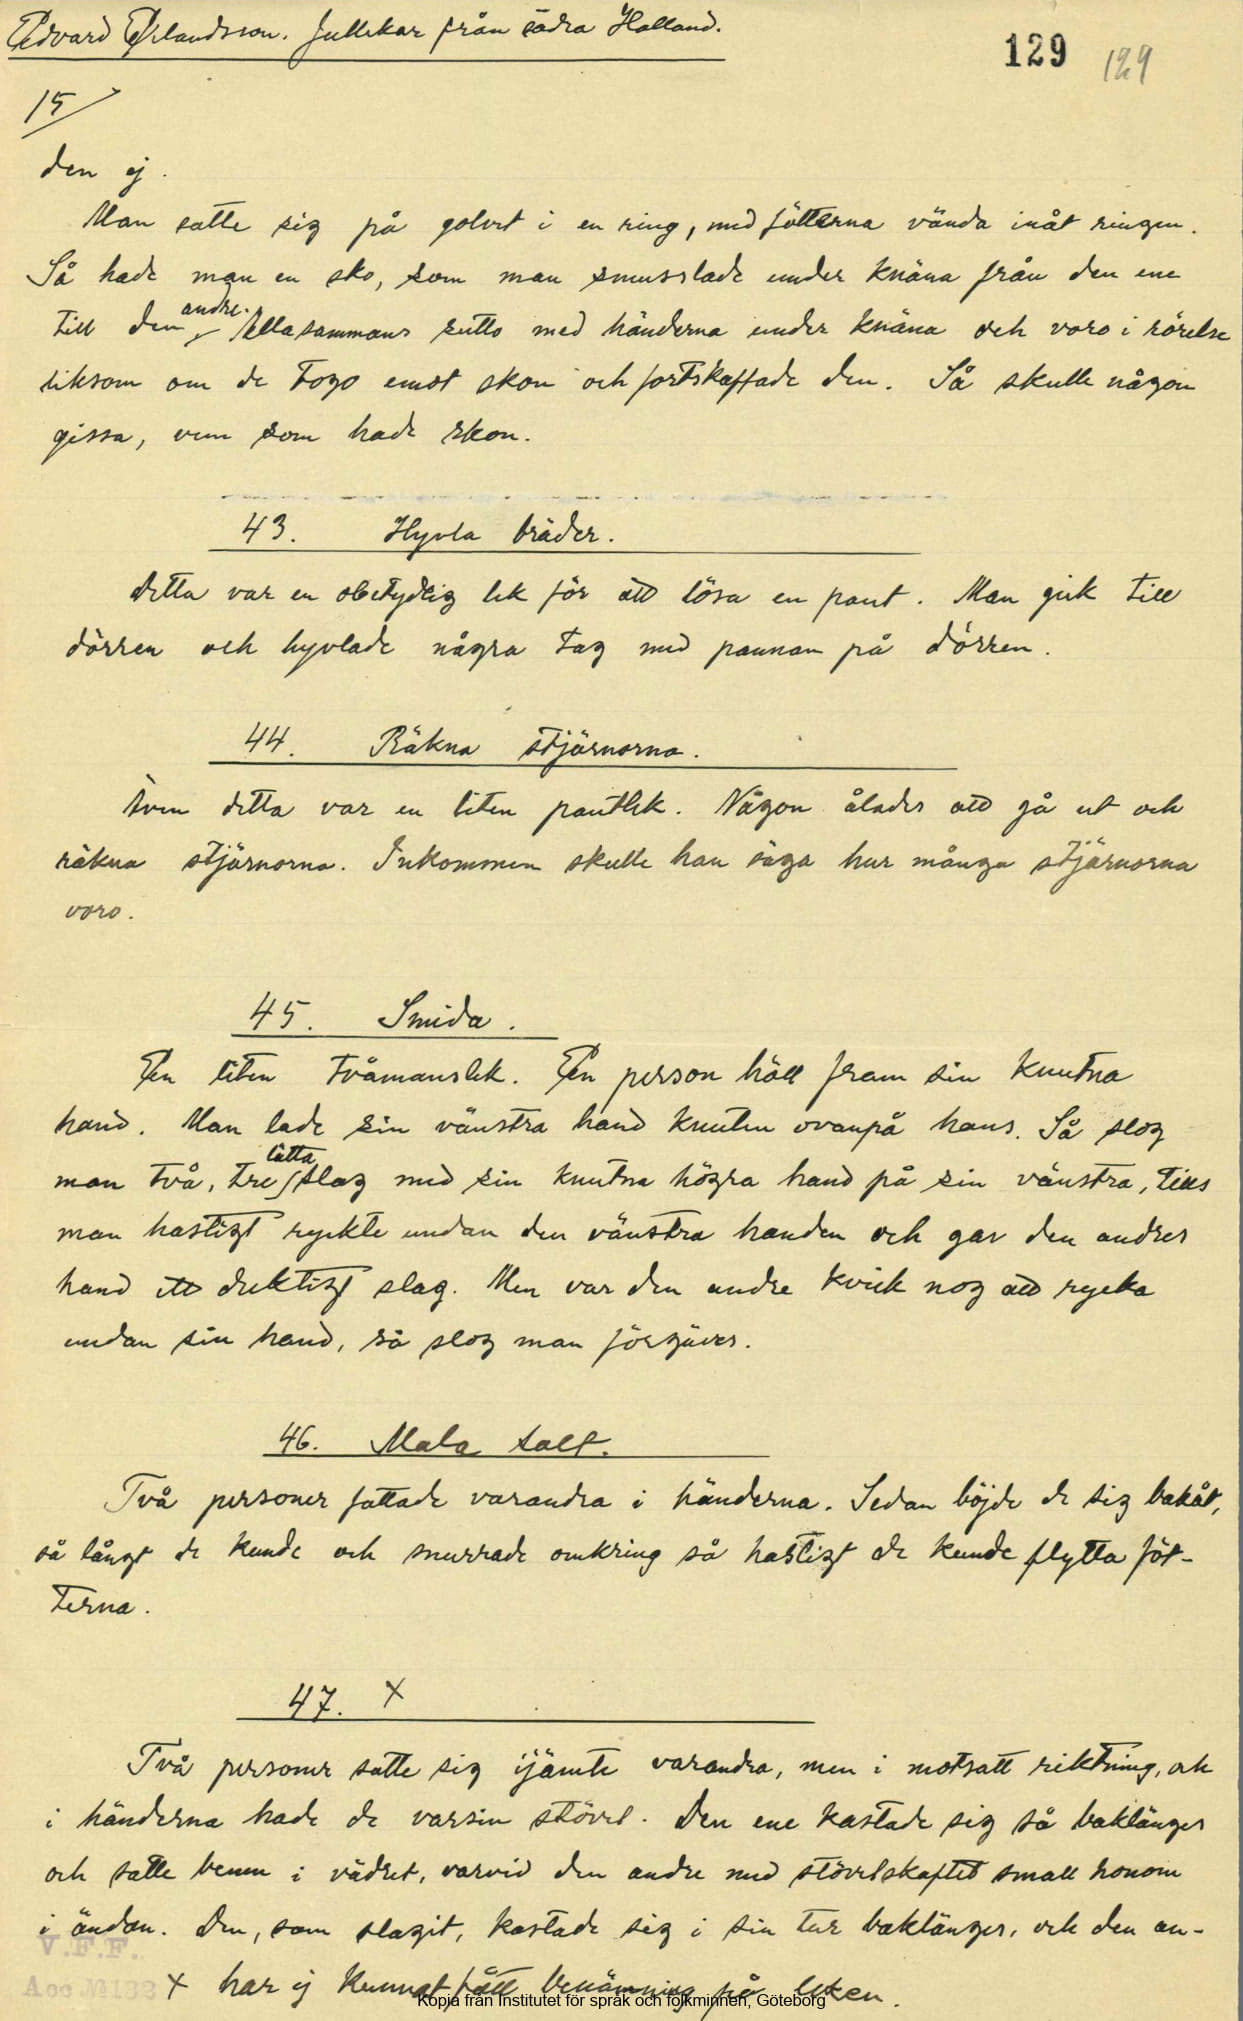 Edvard Orlandsson. Jullekar från södra Halland.
129 129
15
den ej.
Man satte sig på golvet i en ring, med fötterna vända inåt ringen.
Så hade man en sko, som man smusslade under knäna från den ene
till den andre. Allasammans sutto med händerna under knäna och voro i rörelse
liksom om de togo emot skon och fortskaffade den. Så skulle någon
gissa, vem som hade skon.
43. Hyvla bräder.
Detta var en obetydlig lek för att lösa en pant. Man gick till
dörren och hyvlade några tag med pannan på dörren.
44. Räkna stjärnorna.
Även detta var en liten pantlek. Någon ålades att gå ut och
räkna stjärnorna. Inkommen skulle han säga hur många stjärnorna
voro.
45. Smida.
En liten tvåmanslek. En person höll fram sin knutna
hand. Man lade sin vänstra hand knuten ovanpå hans. Så slog
man två, tre lätta slag med sin knutna högra hand på sin vänstra, tills
man hastigt ryckte undan den vänstra handen och gav den andres
hand ett duktigt slag. Men var den andre kvick nog att rycka
undan sin hand, så slog man förgäves.
46. Mala salt.
Två personer fattade varandra i händerna. Sedan böjde de sig bakåt,
så långt de kunde och snurrade omkring så hastigt de kunde flytta föt-
terna.
47. x
Två personer satte sig ijämte varandra, men i motsatt riktning, och
i händerna hade de varsin stövel. Den ene kastade sig så baklänges
och satte benen i vädret, varvid den andre med stövelskaftet small honom
i ändan. Den, som slagit, kastade sig i sin tur baklänges, och den an-
V.F.F.
Acc №132 x har ej kunnat få benämning på leken.
Kopia från Institutet för språk och folkminnen, Göteborg